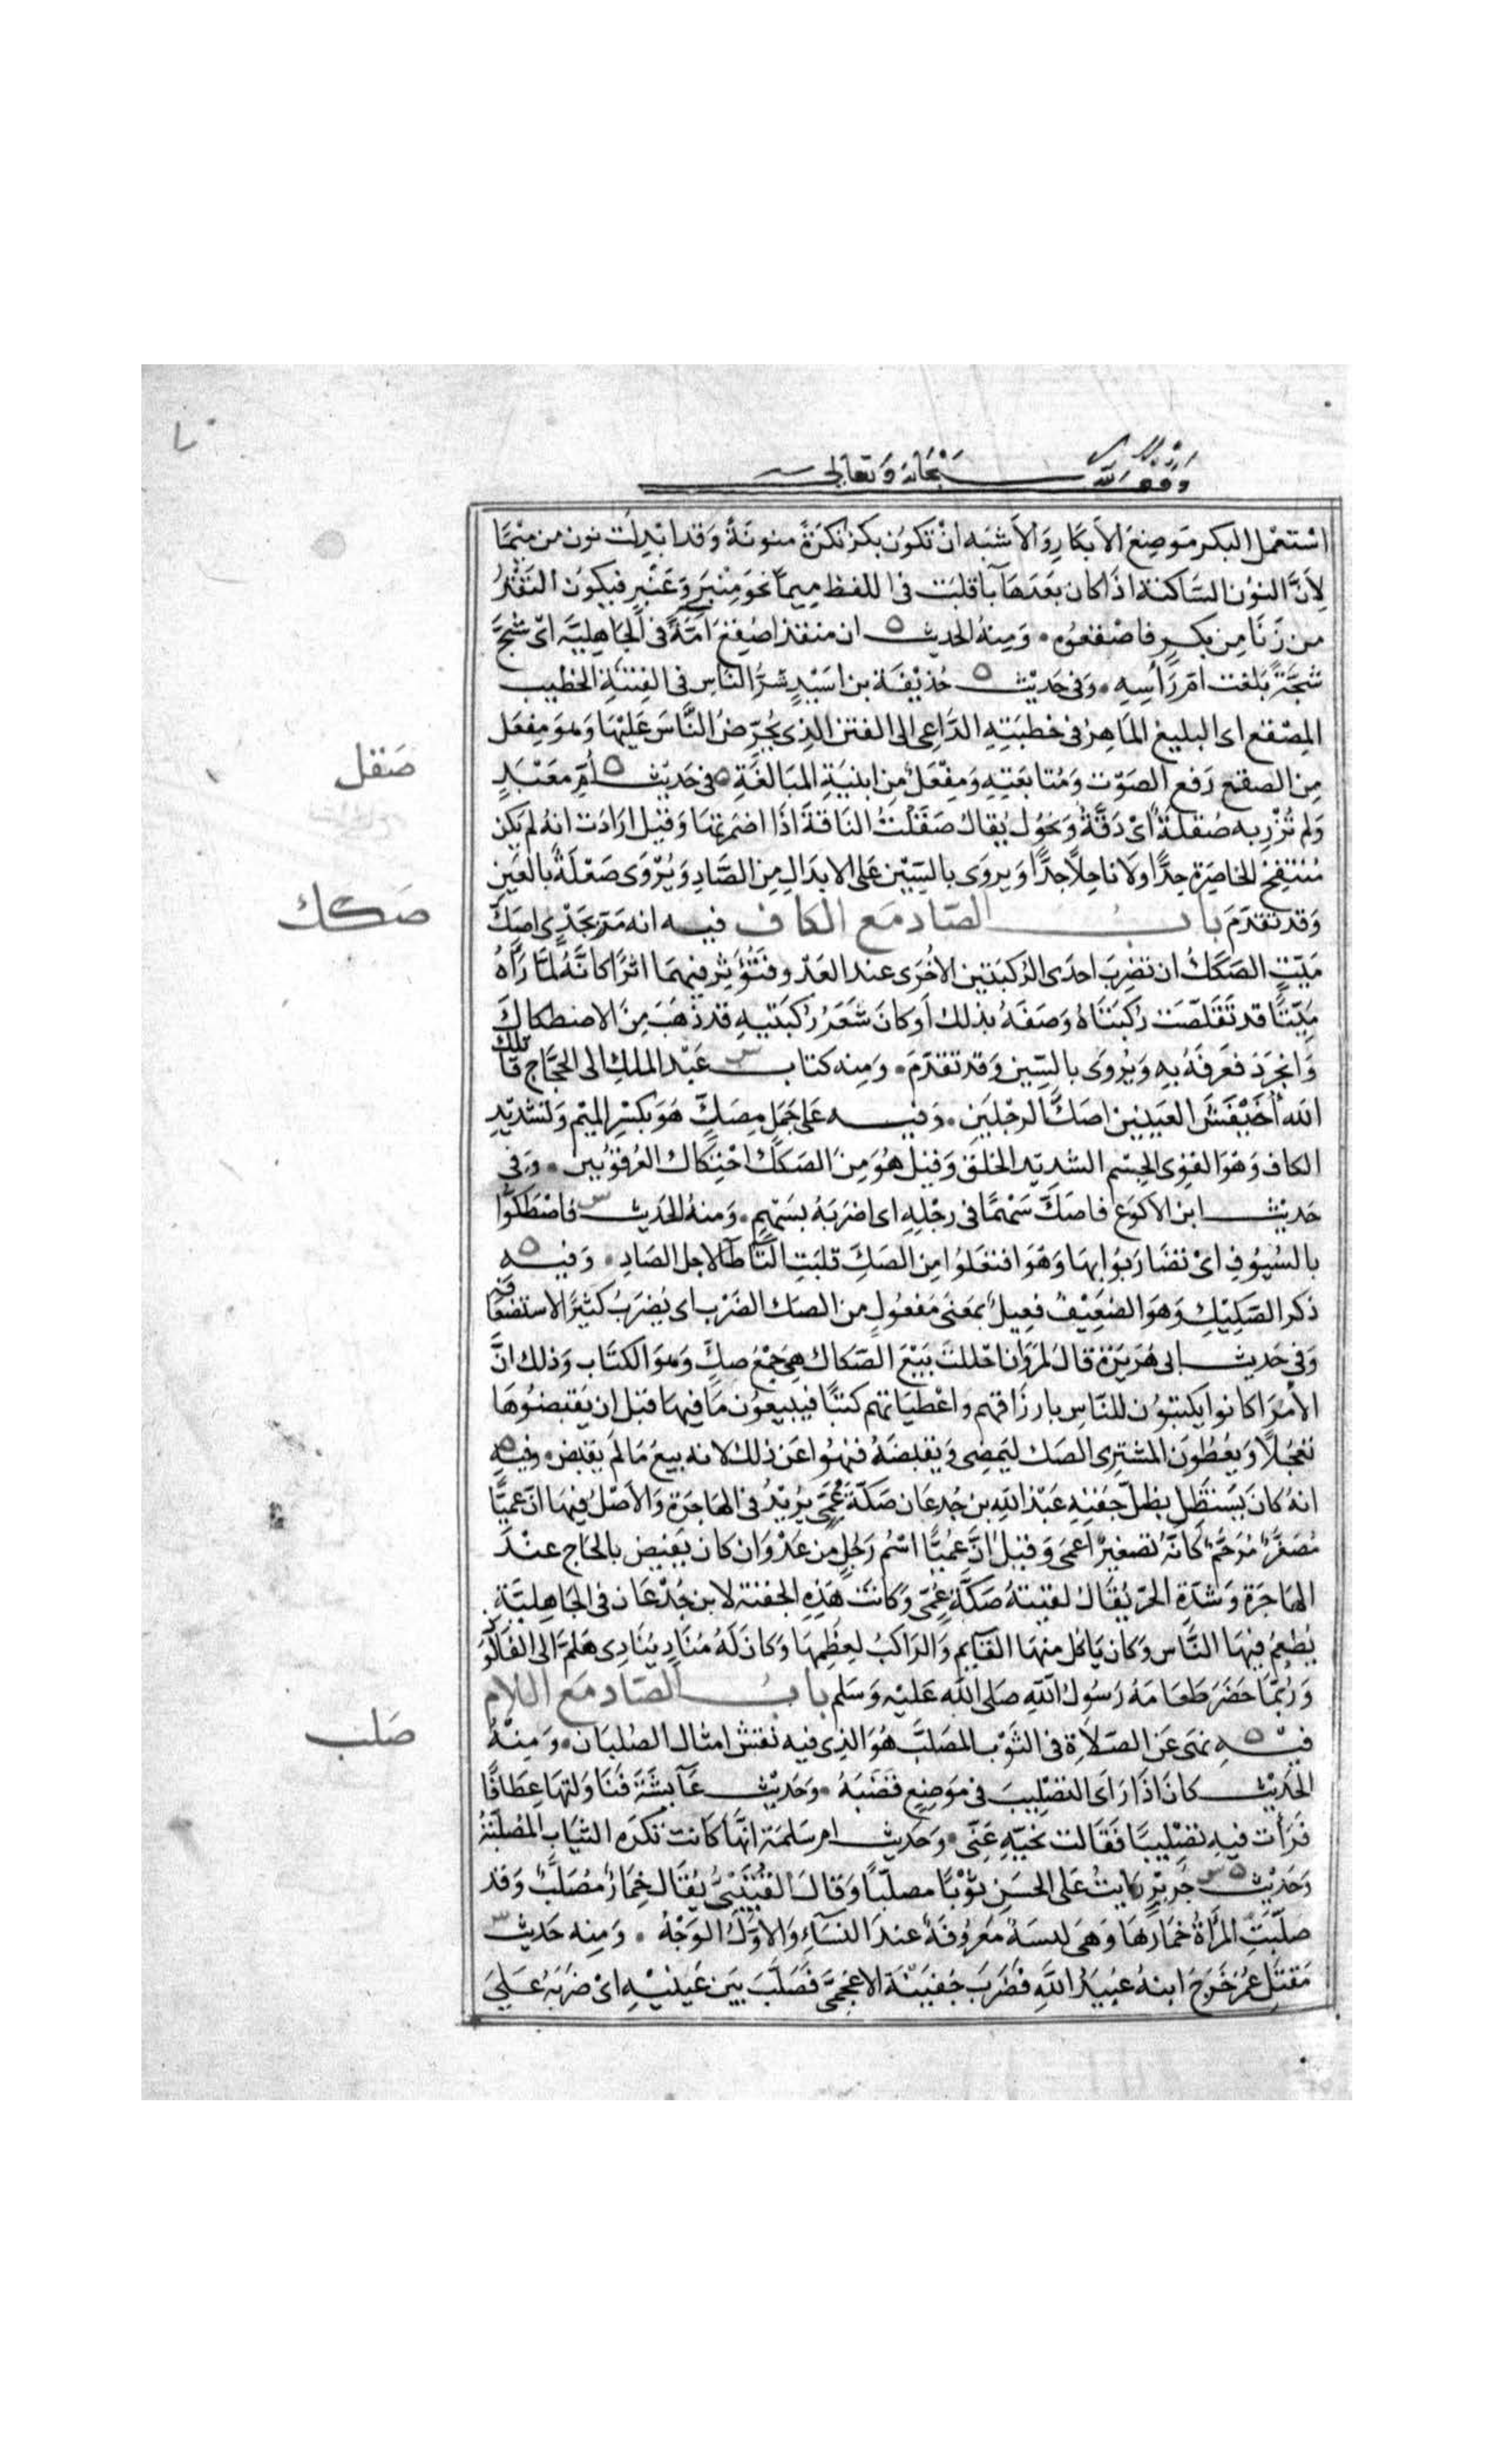 وقف لله سبحانه وتعالى
استعمل البكر موضع الأبكار والأشبه ان تكون بكر نكرة منونة وقد ابدلت نون من ميمًا
لأنَّ النون الساكنة اذا كان بعدها با قلبت في اللفظ ميما نحو منبر وعنبر فيكون التقدير
من زنا من بكر فاصقعوه ومنه الحديث ان منقذا صقع آمّة في الجاهلية اى شجّ
شجّة بلغت ام رأسه وفى حديث حذيفة بن اسيد شرّ الناس في الفتنة الخطيب
المصقع اى البليغ الماهر في خطبته الداعى الى الفتن الذى يحرّض الناس عليها وهو مفعل
من الصقع رفع الصوت ومتابعته ومفعل من ابنية المبالغة في حديث أم معبد
صقل
ولم تزر به صقلة اى دقّة ونحول يقال صقلت الناقة اذا اضمرتها وقيل ارادت انه لم يكن
منتفخ الخاصرة جدًّا ولا ناحلًا جدًّا ويروى بالسين على الابدال من الصاد ويروى صعلة بالعين
وقد تقدم باب الصاد مع الكاف فيه انه مرّ بجدى اصكّ
صكك
ميّت الصكك ان تضرب احدى الركبتين الأخرى عند العدو فتؤثر فيهما اثرًا كانّه لمّا رآه
ميّتًا قد تقلّصت ركبتاه وصفه بذلك او كان شعر ركبتيه قد ذهب من الاصطكاك
وانجرد فعرفه به ويروى بالسين وقد تقدم ومنه كتاب عبد الملك الى الحجاج قاتلك
الله أخيفش العينين اصكّ الرجلين وفيه على جمل مصكّ هو بكسر الميم وتشديد
الكاف وهو القوى الجسم الشديد الخلق وقيل هو من الصكك احتكاك العرقوبين وفى
حديث ابن الأكوع فاصكّ سهمًا في رجله اى اضربه بسهم ومنه الحديث فاصطكّوا
بالسيوف اى تضاربوا بها وهو افتعلوا من الصكّ قلبت التا طا لاجل الصاد وفيه
ذكر الصكيك وهو الضعيف فعيل بمعنى مفعول من الصك الضرب اى يضرب كثيرًا لاستضعافه
وفى حديث ابى هريرة قال لمروان احللت بيع الصكاك هي جمع صكّ وهو الكتاب وذلك انّ
الأمرا كانوا يكتبون للناس بارزاقهم واعطياتهم كتبًا فيبيعون ما فيها قبل ان يقبضوها
تعجلا ويعطون المشترى الصك ليمضى ويقبضه فنهوا عن ذلك لانه بيع ما لم يقبض وفيه
انه كان يستظل بظل جفنة عبد الله بن جدعان صكّة عمىّ يريد في الهاجرة والأصل فيها انّ عميّا
مصغّر مرخّم كانّه تصغير اعمى وقيل انّ عميّا اسم رجل من عدوان كان يفيض بالحاج عند
الهاجرة وشدة الحرّ يقال لقيته صكّة عمىّ وكانت هذه الجفنة لابن جدعان في الجاهلية
يطعم فيها الناس وكان ياكل منها القايم والراكب لعظمها وكان له مناد ينادى هلمّ الى الفالوذ
وربّما حضر طعامه رسول الله صلى الله عليه وسلم باب الصاد مع اللام
صلب
فيه نهى عن الصلاة في الثوب المصلّب هو الذى فيه نقش امثال الصلبان ومنه
الحديث كان اذا رأى التصليب في موضع قضبه وحديث عآيشة فناولتها عطافًا
فرأت فيه تصليبا فقالت نحّيه عنّى وحديث ام سلمة انها كانت تكره الثياب المصلّبة
وحديث جرير رايت على الحسن ثوبًا مصلّبًا وقال القتيبى يقال خمار مصلّب وقد
صلّبت المرأة خمارها وهى لبسة معروفة عند النسآء والأوّل الوجه ومنه حديث
مقتل عمر خرج ابنه عبيد الله فضرب جفينة الاعجمىّ فصلّب بين عينيه اى ضربه على